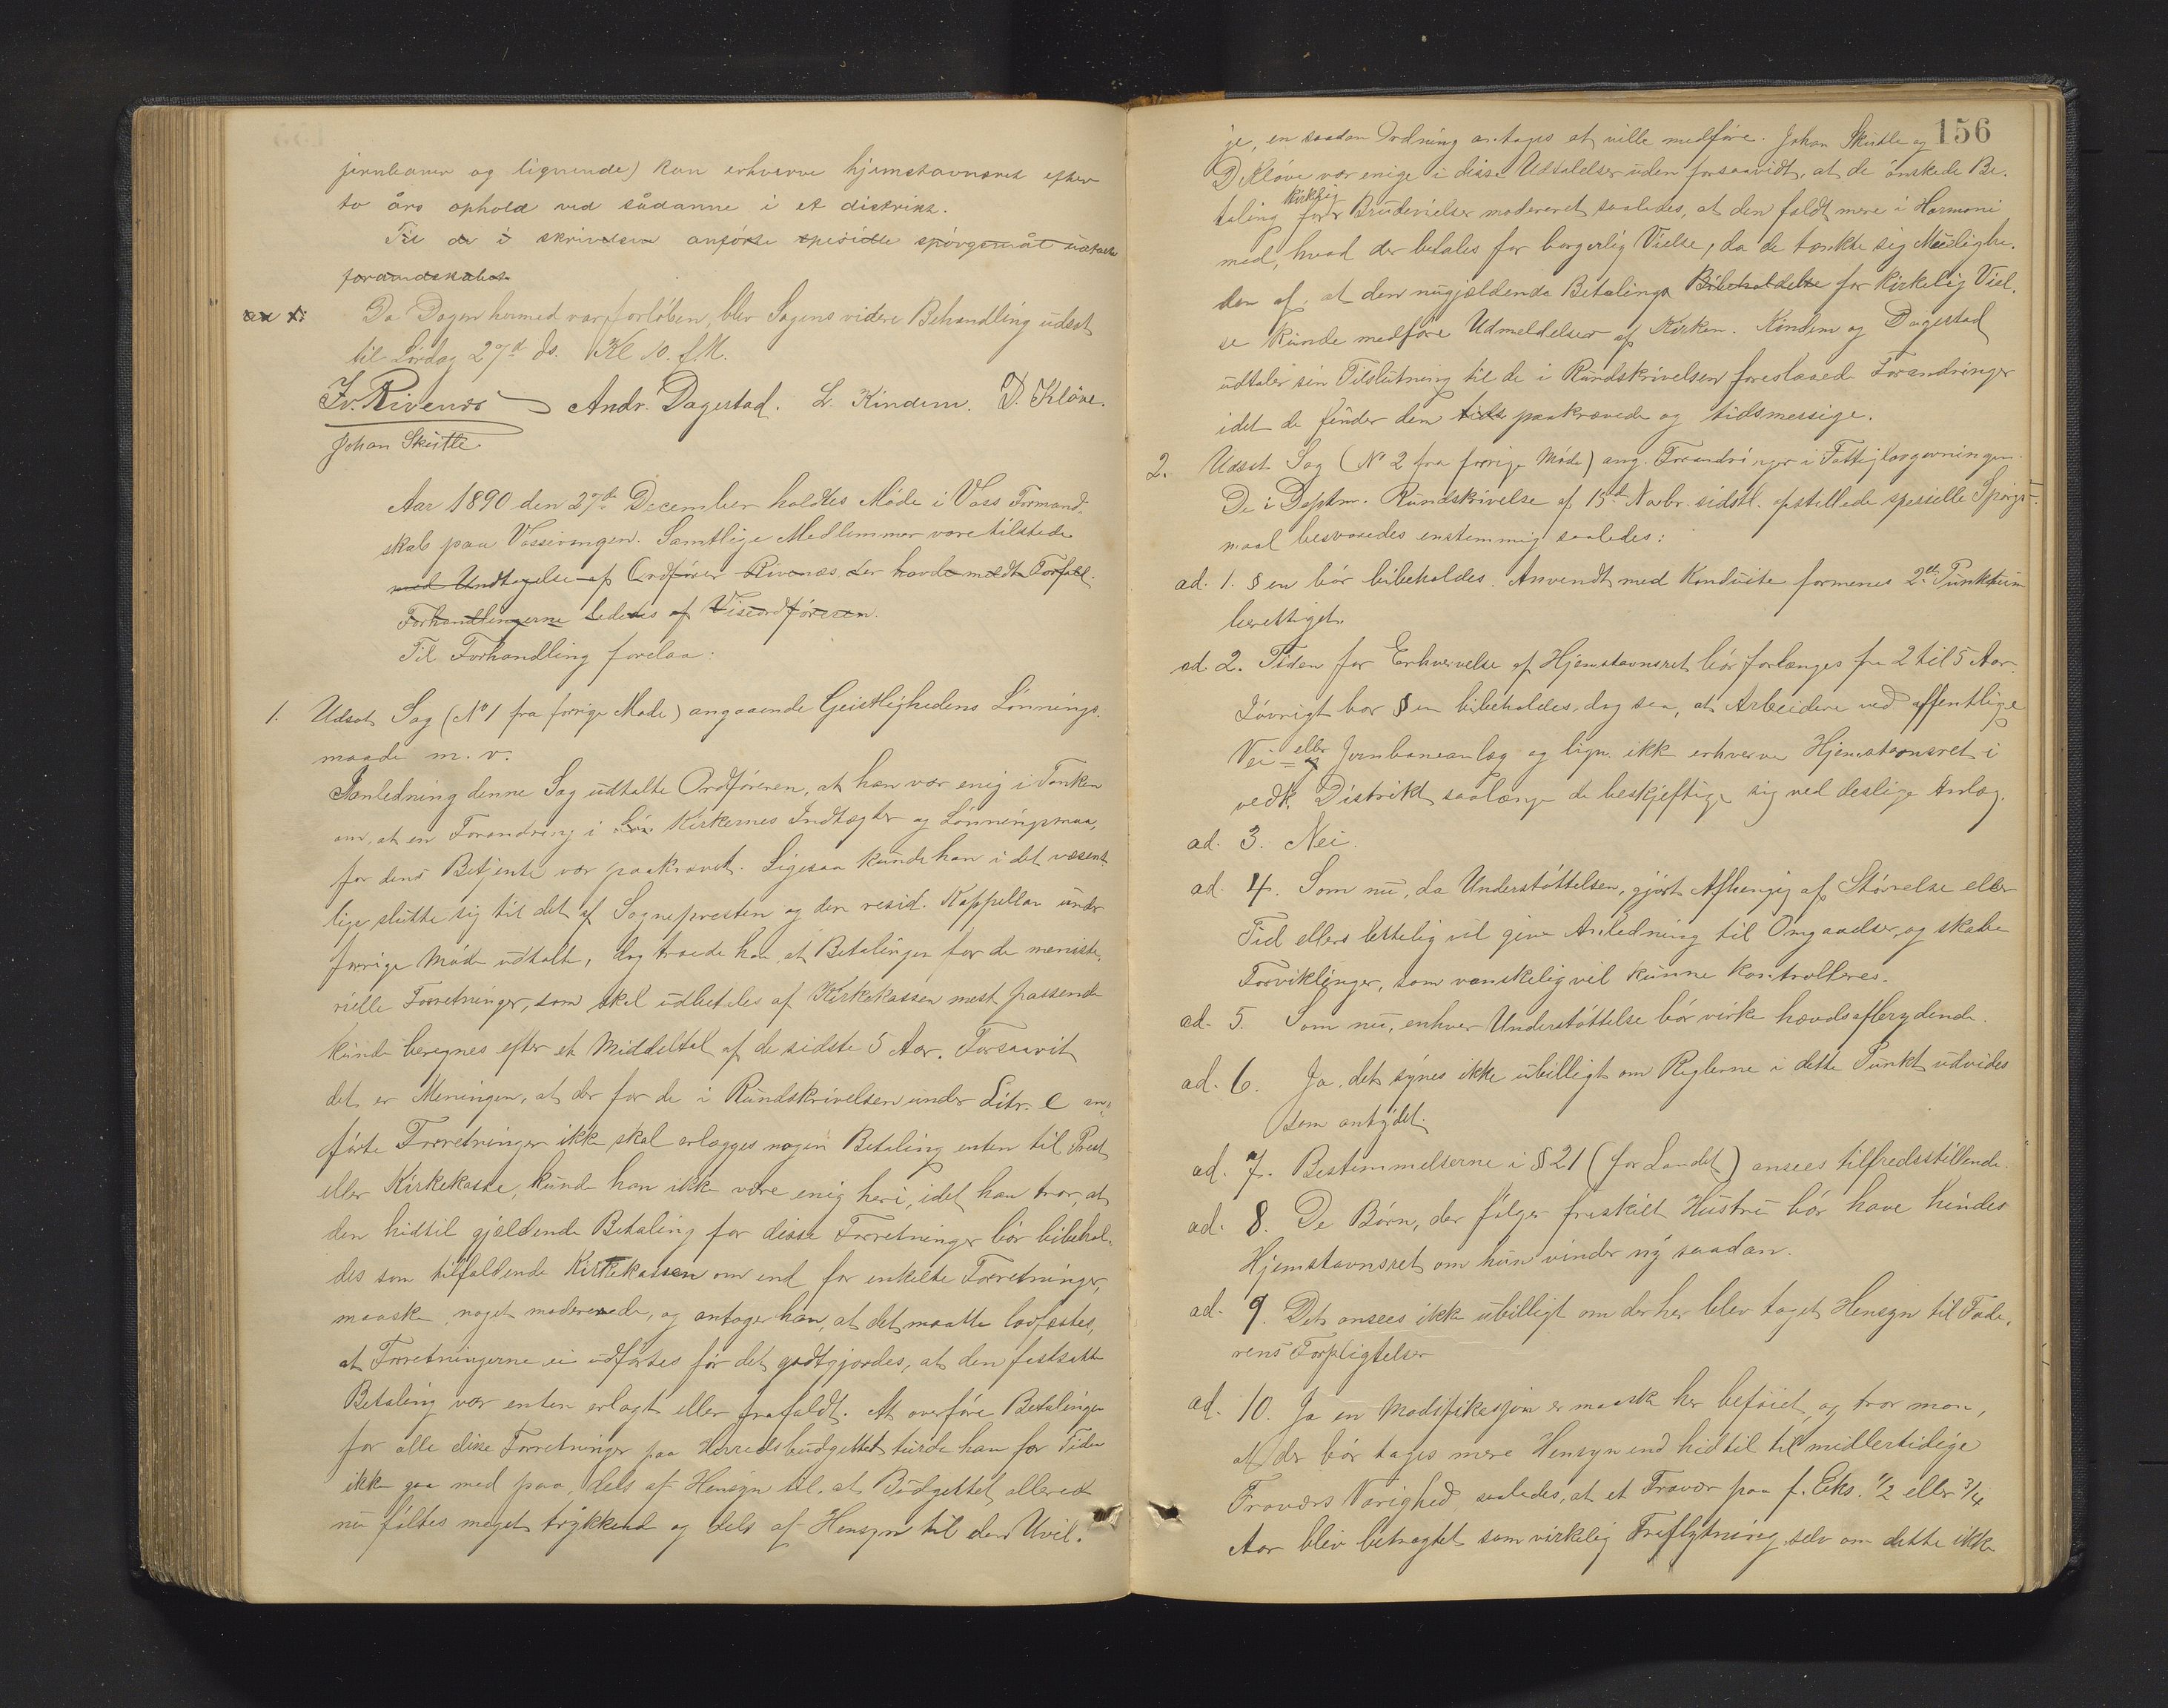 jernbaner og lignende) kan erhverve hjemstavnsret efter
to års ophold ved sådanne i et distrikt.
Til de i skrivelsen anførte spesielle spörgsmål udtalte
formandskabet
ad 1. Da Dagen hermed var forløben, blev Sagens videre Behandling udsat
til Lördag 27de ds. Kl 10. f.M.
Iv. Rivenæs Andr. Dagestad. L. Kindem. D. Klöve.
Johan Skutle
Aar 1890 den 27de December holdtes Möde i Voss Formand-
skab paa Vossevangen. Samtlige Medlemmer vare tilstede
med Undtagelse af Ordförer Rivenæs der havde meldt Forfald.
Forhandlingerne lededes af Viseordföreren.
Til Forhandling forelaa:
1. Udsat Sag (No 1 fra forrige Möde) angaaende Geistlighedens Lönnings-
maade m. v.
I Anledning denne Sag udtalte Ordföreren, at han var enig i Tanken
om, at en Forandring i Lön Kirkernes Indtægter og Lönningsmaa-
for dens Betjente var paakrævet. Ligesaa kunde han i det væsent-
lige slutte sig til det af Sognepresten og den resid. Kappellan under
forrige Möde udtalte, dog troede han at Betalingen for de ministe-
rielle Forretninger, som skal udbetales af Kirkekassen mest passende
kunde beregnes efter et Middeltal af de sidste 5 Aar. Forsaavit
det er Meningen, at der for de i Rundskrivelsen under Litr. C an-
förte Forretninger ikke skal erlægges nogen Betaling enten til Prest
eller Kirkekasse, kunde han ikke være enig heri, idet han tror, at
den hidtil gjældende Betaling for disse Forretninger bör bibehol-
des som tilfaldende Kirkekassen om end for enkelte Forretninger,
maaske noget modererede, og antager han, at det maatte lovfæstes,
at Forretningerne ei udförtes för det godtgjordes, at den fastsatte
Betaling var enten erlagt eller frafaldt. At overföre Betalingen
for alle disse Forretninger paa Herredsbudgettet turde han for Tiden
ikke gaa med paa, dels af Hensyn til, at Budgettet allerede
nu föltes meget trykkende og dels af Hensyn til den Uvil-
156
je, en saadan Ordning antages at ville medföre. Johan Skutle og
D Klöve var enige i disse Udtalelser uden forsaavidt, at de önskede Be-
taling for kirkelig Brudevielser modereret saaledes, at den faldt mere i Harmoni
med, hvad der betales for borgerlig Vielse, da de tænkte sig Mulighe-
den af, at den nugjældende Betalings Bibeholdelse for kirkelig Viel-
se kunde medföre Udmeldelser af Kirken. Kindem og Dagestad
udtaler sin Tilslutning til de i Rundskrivelsen foreslaaede Forandringer
idet de finder dem tids paakrævede og tidsmessige.
2. Udsat Sag (No 2 fra forrige Möde) ang. Forandringer i Fattiglovgivningen.
De i Deptm. Rundskrivelse af 15de Novbr. sidstl. opstillede spesielle Spörgs-
maal besvaredes enstemmig saaledes:
ad. 1. §en bör bibeholdes. Anvendt med Konduite formenes 2det Punktum
berettiget.
ad 2. Tiden for Erhvervelse af Hjemstavnsret bör forlænges fra 2 til 5 Aar.
Iövrigt bör §en bibeholdes, dog saa, at Arbeidere ved offentlige
Vei- eller Jernbaneanlæg og lign. ikke erhverve Hjemstavnsret i
vedk. Distrikt saalænge de beskjeftige sig ved deslige Anlæg.
ad. 3. Nei.
ad. 4. Som nu, da Understöttelsen, gjört Afhengig af Störrelse eller
Tid ellers lettelig vil give Anledning til Omgaaelser, og skabe
Forviklinger, som vanskelig vil kunne kontrolleres.
ad. 5. Som nu, enhver Understöttelse bör virke hævdsafbrydende.
ad. 6. Ja, det synes ikke ubilligt om Reglerne i dette Punkt udvides
som antydet.
ad. 7. Bestemmelserne i § 21 (for Landet) ansees tilfredsstillende.
ad. 8. De Börn, der fölger fraskilt Hustru bör have hendes
Hjemstavnsret om hun vinder ny saadan.
ad. 9. Det ansees ikke ubilligt om der her blev taget Hensyn til Fade-
rens Forpligtelser
ad. 10. Ja en Modifikasjon er maaske her beföiet, og tror man,
at der bör tages mere Hensyn end hidtil til midlertidige
Fraværs Varighed saaledes, at et Fravær paa f. Eks. 1/2 eller 3/4
Aar blev betragtet som virkelig Fraflytning selv om dette ikke